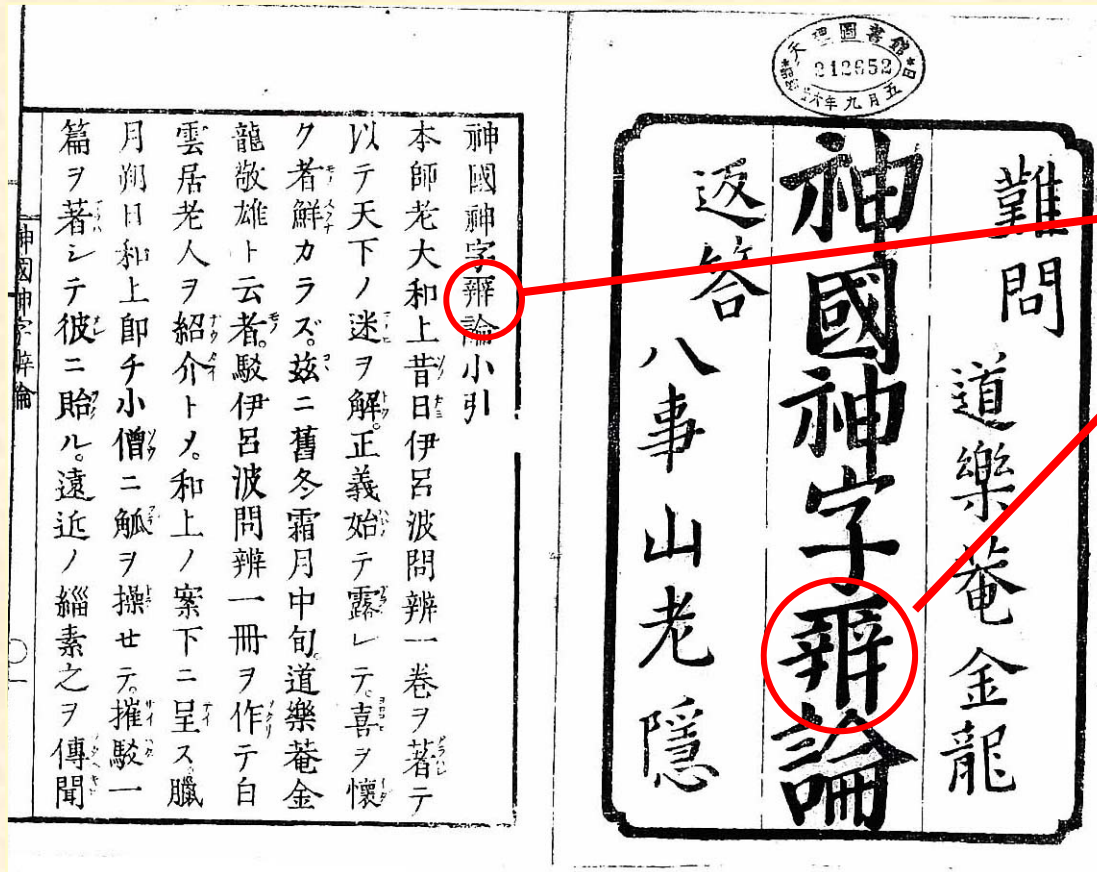 天理圖書館
難問 道樂菴金龍
神國神字辨論
返答 八事山老隱
神國神字辨論小引
本師老大和上昔日伊呂波問辨一卷ヲ著テ
以テ天下ノ迷ヲ解。正義始テ露レテ。喜ヲ懷
ク者鮮カラズ。茲ニ舊冬霜月中旬。道樂菴金
龍敬雄ト云者。駁伊呂波問辨一冊ヲ作テ白
雲居老人ヲ紹介トメ。和上ノ案下ニ呈ス臘
月朔日和上卽チ小僧ニ觚ヲ操セテ。摧駁一
篇ヲ著シテ彼ニ貽ル。遠近ノ緇素之ヲ傳聞
神國神字辨論